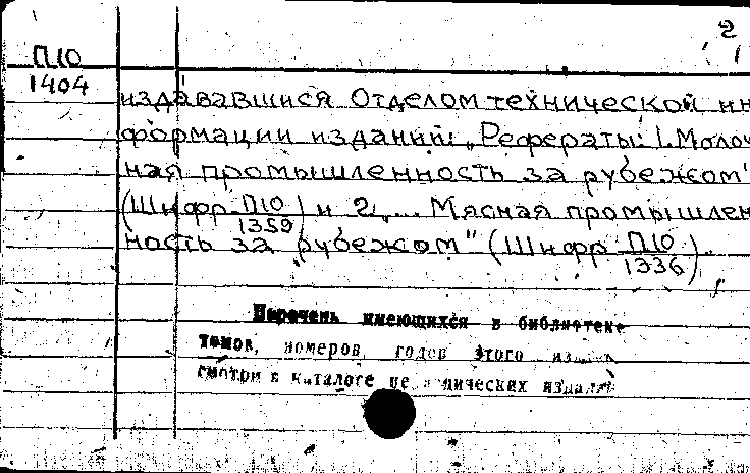 2
П10
1404
издававшися Отделом технической ин
формации изданий: „Рефераты: 1. Молоч
ная промышленность за рубежом"
(Шифр П10/1359) и 2„... Мясная промышлен
ность за рубежом" (Шифр П10/1336).
Перечень имеющихся в библиотеке
томов, номеров, годов этого
смотри в каталоге